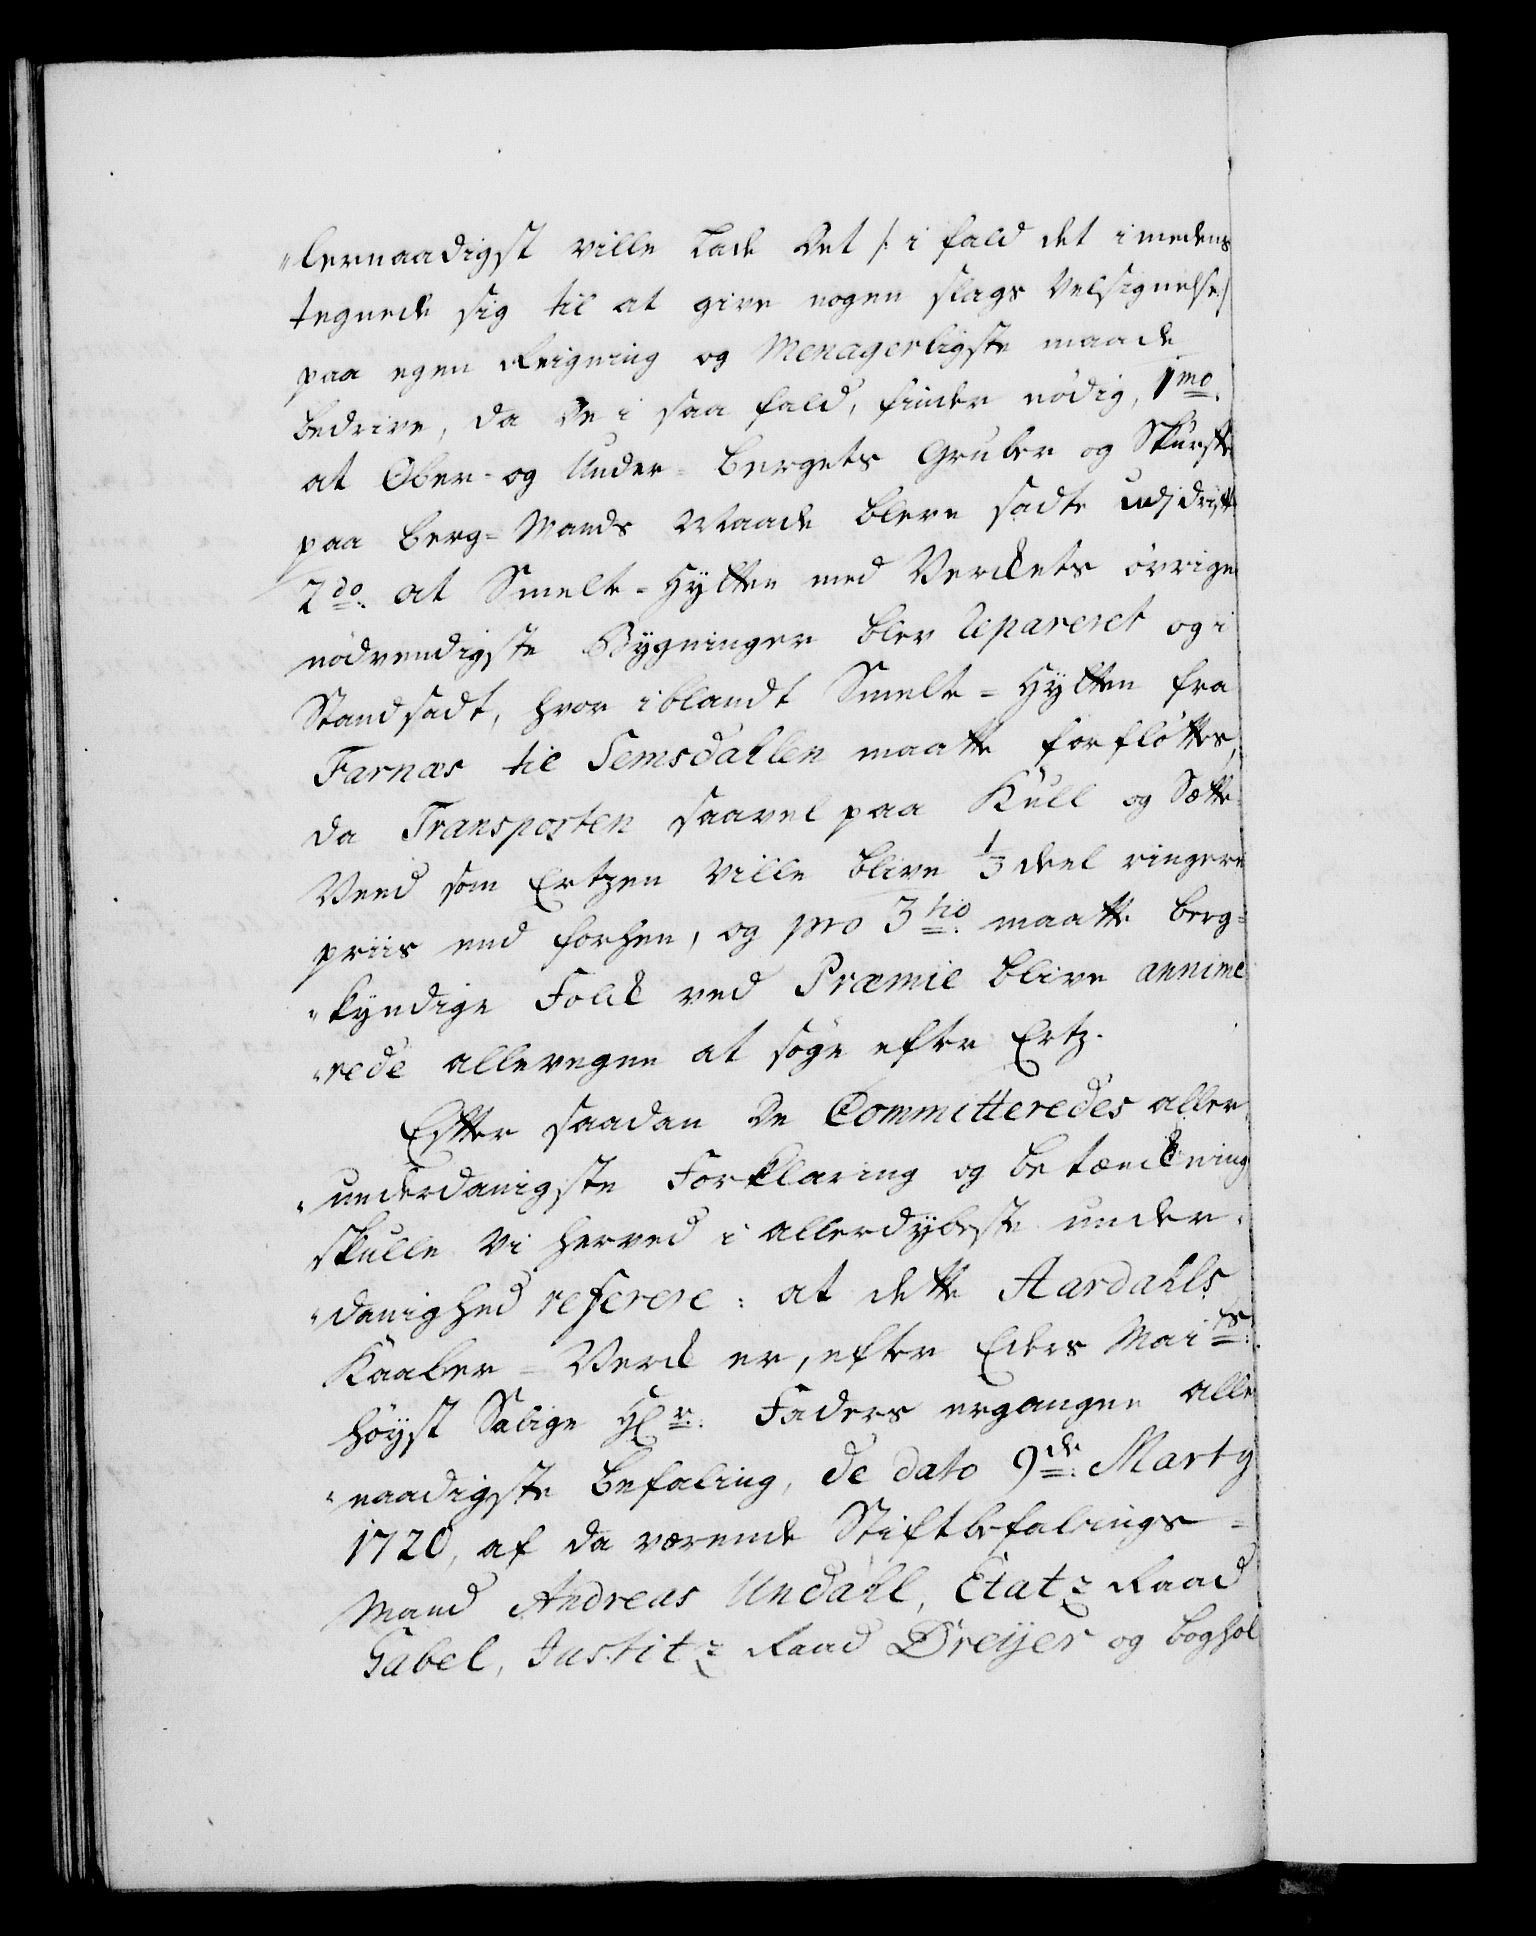 "lernaadigst ville lade det /: i fald det imedens
tegnede sig til at give nogen slags Velsignelse/
paa egen Reigning og Menagerligste maade
bedrive, da de i saa fald, finder nödig, 1mo.
at Ober- og Under- bergets Gruber og Skurffe
paa berg-Mands Maade bleve sadte udj drift
2do: at Smelte-Hÿtten med Verckets övrige
nödvendigste Bÿgninger blev Repareret og i
Stand sadt, hvor iblandt Smelte-Hÿtten fra
Farnæs til Semsdahlen maatte forflöttes,
da Transporten saavel paa Kull og Sætte
Veed som Ertzen ville blive 1/3 deel ringere
priis end forhen, og pro 3tio. maatte berg-
"kyndige Folck ved Præmie blive annime
"rede allevegne at söge efter Ertz.
Efter saadan de Committeredes aller
"underdanigste Forklaring og betænckning
skulle vi herved i allerdybeste under-
"danighed referere: at dette Aardahls
Kaaber-Verck er, efter Eders Maits:
höyst Salige Hr: Faders ergangne aller
"naadigste befaling, de dato 9de: Marty
1720, af da værende Stiftbefalings-
Mand Andreas Undahl, Etatz Raad
Gabel, Justitz Raad Dreÿer og boghol